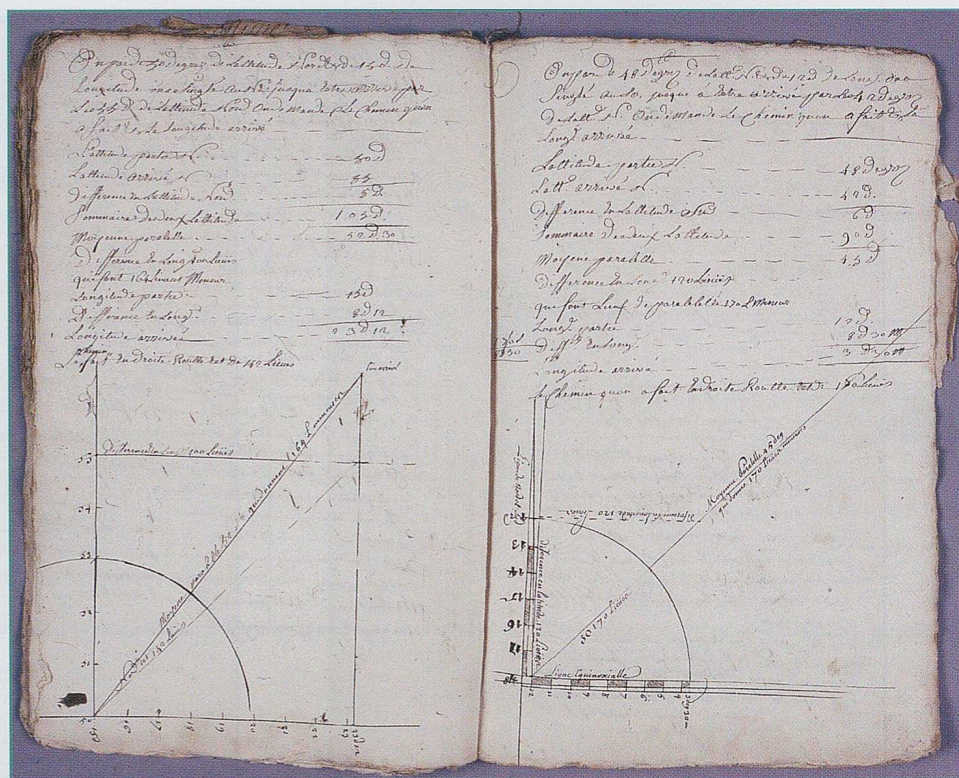 On par de 50 degrez de Lattitude Nord et de 15d de
Longitude on a Singlé au NE jusqua estre arrivé par
Les 55d de Lattitude Nord On demande Le Chemin quon
a fait et La Longitude arrivé
Lattitude partie N. 50d
Lattitude arrivé N. 55
Difference en Lattitude Nord 5d
Sommaire des deux Lattitude 105d
Moyenne paralelle 52d30
Difference en Long 100 Lieues
qui font 164 Lieues Mineur
Longitude partie 15d
Difference en Long. 8d12
Longitude arrivée 23d12
Chemin
fait en droite Routte est de 140 Lieues
Lieu arrivé
difference en Long 100 Lieues
55
54
53
52
51
50
NE 140 Lieues
Moyenne qui donnent 164 L mineures
15d 16 17 18 19 20 21 22 23 23d12
On par de 48 degrez de Latt. N. et de 12d de Long. on a
Singlé au SO. jusque à estre arrivé par Les 42 degrez
de Latt. N. On demande Le Chemin quon a fait et La
Long. arrivée
Lattitude partie N. 48 degrez
Latt. arrivé N. 42d.
Difference en Lattitude Sud 6d
Sommaire des deux Lattitude 90d
Moyene paralelle 45d
difference en Long. 120 Lieues
qui font Lieues de paralelle 170 L Mineur
Long. partie 12d
Diff. en Long. 8d30M
Longitude arrivé 3d30M
Le Chemin quon a fait en droite Routte est de 170 Lieues
Moyenne paralelle 45 deg
qui donne 170 Lieues mineures
difference en longitude 120 Lieues
Ligne de Nord et Sud
difference en latitude 120 Lieues
SO 170 Lieues
Ligne Equinoxialle
12 11 10 9 8 7 6 5 4 3d30m